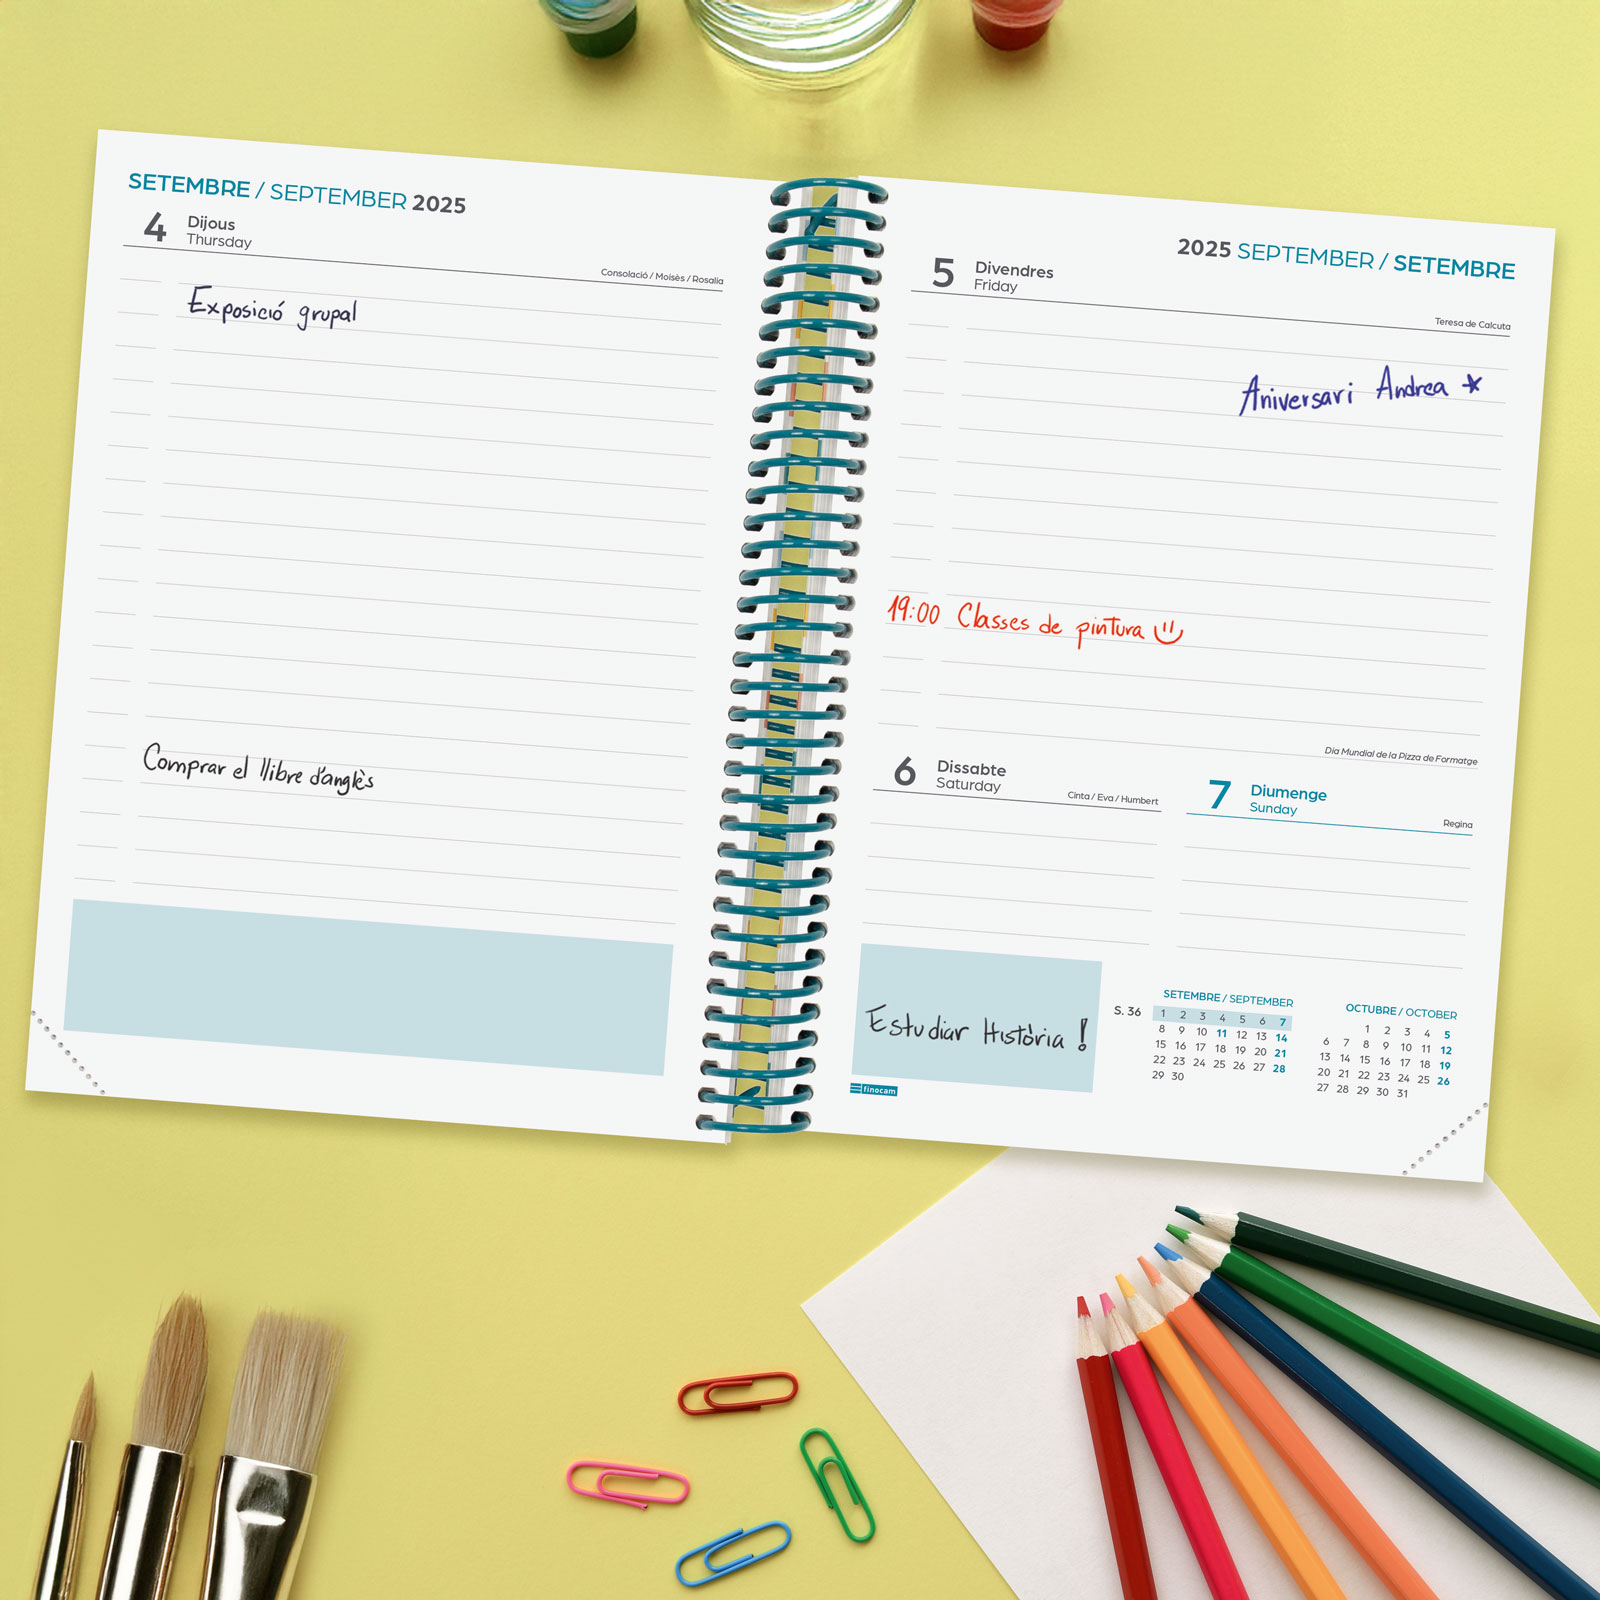 SETEMBRE / SEPTEMBER 2025
4 Dijous
Thursday
Consolació / Moisès / Rosalía
Exposició grupal
Comprar el llibre d'anglès
2025 SEPTEMBER / SETEMBRE
5 Divendres
Friday
Teresa de Calcuta
Aniversari Andrea
19:00 Classes de pintura
Dia Mundial de la Pizza de Formatge
6 Dissabte
Saturday
Cinta / Eva / Humbert
7 Diumenge
Sunday
Regina
Estudiar Història !
finocam
S. 36
SETEMBRE / SEPTEMBER
1 2 3 4 5 6 7
8 9 10 11 12 13 14
15 16 17 18 19 20 21
22 23 24 25 26 27 28
29 30
OCTUBRE / OCTOBER
1 2 3 4 5
6 7 8 9 10 11 12
13 14 15 16 17 18 19
20 21 22 23 24 25 26
27 28 29 30 31